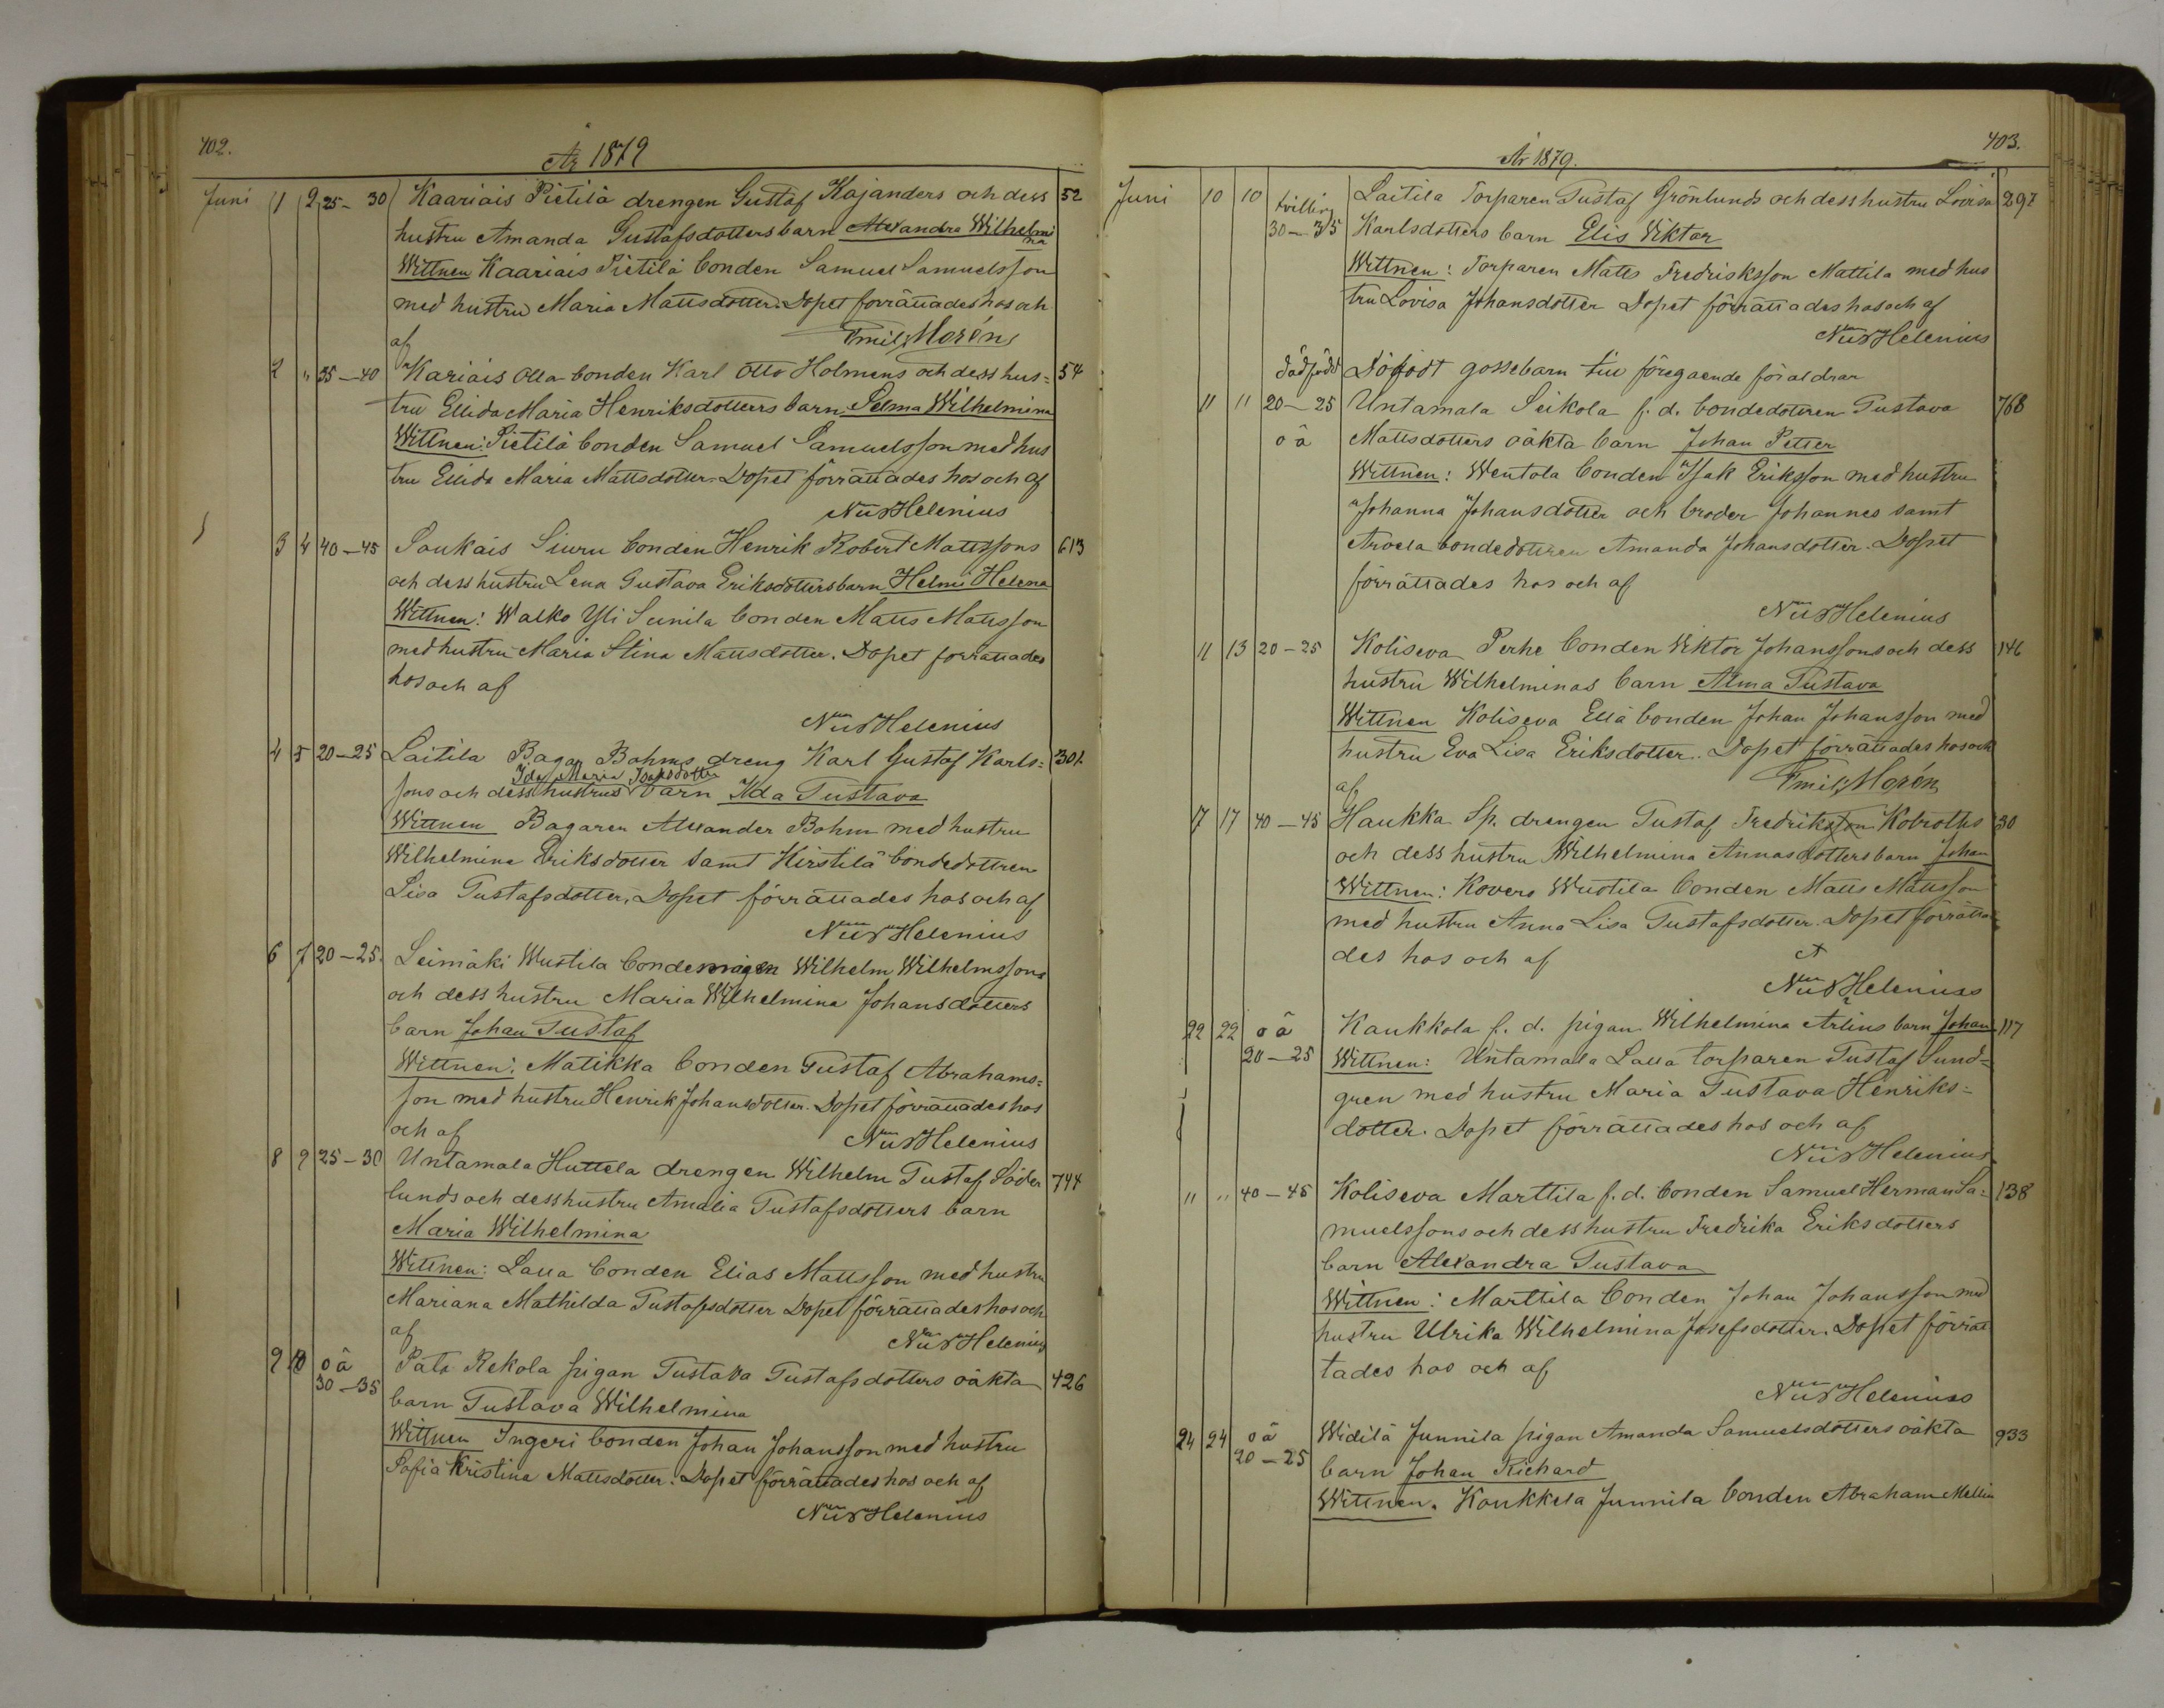 402.
År 1879
Juni 1 2 25-30 Kaariais Pietilä drengen Gustaf Kajanders och dess 52
hustru Amanda Gustafsdotters barn Alexandra Wilhelmi
na
Wittnen Kaariais Pietilä bonden Samuel Samuelsson
med hustru Maria Mattsdotter. Dopet förrättades hos och
af Emil Morén
2 " 35-40 Kariais Olla bonden Karl Otto Holmens och dess hus= 54
tru Ellida Maria Henriksdotters barn Selma Wilhelmina
Wittnen: Pietilä bonden Samuel Samuelsson med hus
tru Ellida Maria Mattsdotter. Dopet förrättades hos och af
Nils Helenius
3 4 40-45 Soukais Siuru bonden Henrik Robert Mattssons 613
och dess hustru Lena Gustava Eriksdotters barn Helmi Helena
Wittnen: Walko Yli Seinilä bonden Matts Mattsson
med hustru Maria Stina Mattsdotter. Dopet förrättades
hos och af
Nils Helenius
4 5 20-25 Laitila Bagar Bohms dreng Karl Gustaf Karls= 301.
Ida Maria Isaksdotter
sons och dess hustrus barn Ida Gustava
Wittnen Bagaren Alexander Bohm med hustru
Wilhelmina Eriksdotter samt Kirstilä bondedottren
Lisa Gustafsdotter, Dopet förrättades hos och af
Nils Helenius
6 7 20-25. Leimäki Wustila bondemågen Wilhelm Wilhelmssons
och dess hustru Maria Wilhelmina Johansdotters
barn Johan Gustaf
Wittnen: Matikka bonden Gustaf Abrahams=
son med hustru Henrik Johansdotter. Dopet förrättades hos
och af Nils Helenius
8 9 25-30 Untamala Huttela drengen Wilhelm Gustaf Söder 744
lunds och dess hustru Amalia Gustafsdotters barn
Maria Wilhelmina
Wittnen: Laua bonden Elias Mattsson med hustru
Mariana Mathilda Gustafsdotter Dopet förrättades hos och
af Nils Helenius
9 10 oä Pato Rekola pigan Gustava Gustafsdotters oäkta 426
30-35 barn Gustava Wilhelmina
Wittnen Ingeri bonden Johan Johansson med hustru
Sofia Kristina Mattsdotter. Dopet förrättades hos och af
Nils Helenius
403.
År 1879.
Juni 10 10 tvilling Laitila Torparen Gustaf Grönlunds och dess hustru Lovisa 297
30-35 Karlsdotters barn Elis Viktor
Wittnen: Torparen Matts Fredriksson Mattila med hus
tru Lovisa Johansdotter Dopet förrättades hos och af
Nils Helenius
dödfödt Döfödt gossebarn till föregaende föraldrar
11 11 20-25 Untamala Seikola f. d. bondedottren Gustava 768
oä Mattsdotters oäkta barn Johan Petter
Wittnen: Wentola bonden Isak Eriksson med hustru
Johanna Johansdotter och broder Johannes samt
Arvela bondedottren Amanda Johansdotter. Dopet
förrättades hos och af
Nils Helenius
11 13 20-25 Koliseva Perhe bonden Viktor Johanssons och dess 146
hustru Wilhelminas barn Alma Gustava
Wittnen Koliseva Ellä bonden Johan Johansson med
hustru Eva Lisa Eriksdotter. Dopet förrättades hos och
af Emil Morén
17 17 40-45 Haukka Sp. drengen Gustaf Fredriksson Kolroths 30
och dess hustru Wilhelmina Annasdotters barn Johan
Wittnen: Kovero Wustila bonden Matts Mattsson
med hustru Anna Lisa Gustafsdotter. Dopet förrätta
des hos och af
Nils Helenius
22 22 oä Kaukkola f. d. pigan Wilhelmina Arlins barn Johan 117
20-25 Wittnen: Untamala Laua torparen Gustaf Sund=
gren med hustru Maria Gustava Henriks=
dotter. Dopet förrättades hos och af
Nils Helenius
" " 40-45 Koliseva Marttila f. d. bonden Samuel Herman Sa= 138
muelssons och dess hustru Fredrika Eriksdotters
barn Alexandra Gustava
Wittnen: Marttila bonden Johan Johansson med
hustru Ulrika Wilhelmina Josefsdotter. Dopet förrät
tades hos och af
Nils Helenius
24 24 oä Widilä Junnila pigan Amanda Samuelsdotters oäkta 933
20-25 barn Johan Richard
Wittnen. Koukkela Junnila bonden Abraham Mellin